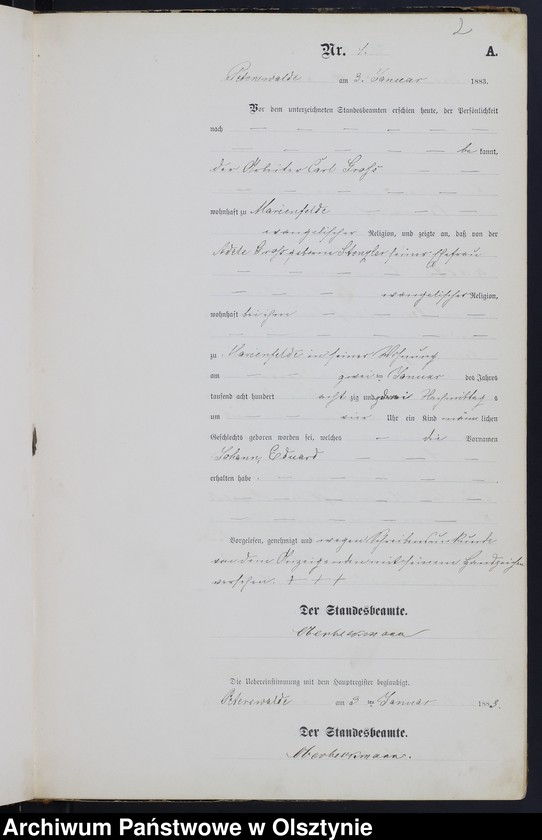 2
Nr. 1. A.
Peterswalde am 3. Januar 1883.
Vor dem unterzeichneten Standesbeamten erschien heute, der Persönlichkeit
nach
be kannt,
der Arbeiter Carl Groß
wohnhaft zu Marienfelde
evangelischer Religion, und zeigte an, daß von der
Adele Groß geborne seiner Ehefrau
evangelischer Religion,
wohnhaft bei ihm
zu Marienfelde in seiner Wohnung
am zwei ten Januar des Jahres
tausend acht hundert acht zig und drei Nachmittag s
um vier Uhr ein Kind männ lichen
Geschlechts geboren worden sei, welches die Vornamen
Johann, Eduard
erhalten habe.
Vorgelesen, genehmigt und wegen Schreibensunkunde
von dem Anzeigenden mit seinem Handzeichen
versehen. + + +
Der Standesbeamte.
Die Uebereinstimmung mit dem Hauptregister beglaubigt.
Peterswalde am 3 ten Januar 1883.
Der Standesbeamte.
Archiwum Państwowe w Olsztynie